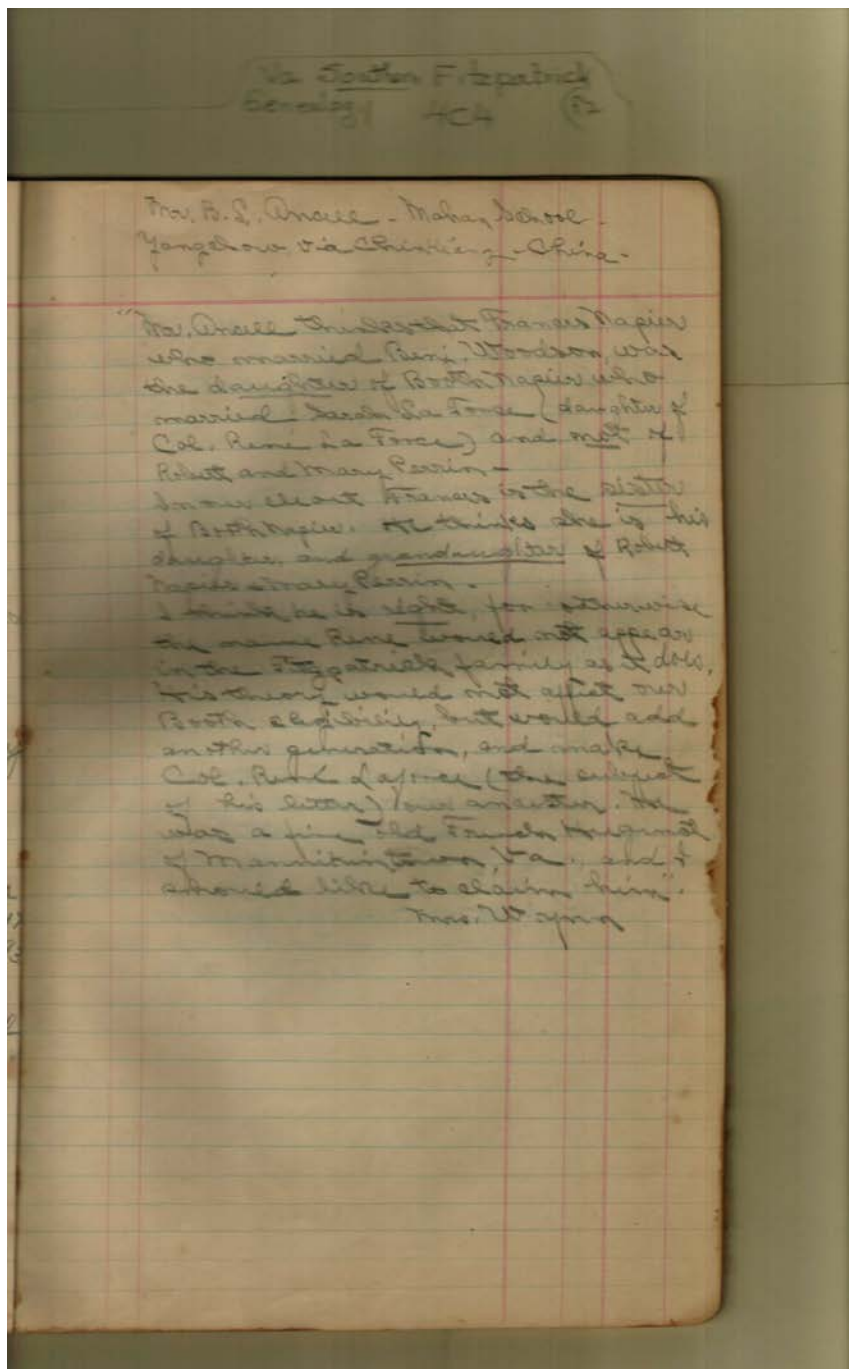 Va Southern Fitzpatrick
Genealogy 4C4
Mr. B. L. Ancell - Mahan School -
Yangchow, via Chinkiang - China -
"Mr. Ancell thinks that Frances Napier
who married Benj. Woodson, was
the daughter of Booth Napier who
married Sarah La Force (daughter of
Col. Rene La Force) and not of
Robert and Mary Perrin -
In our chart Frances is the sister
of Booth Napier. He thinks she is his
daughter, and grandaughter of Robert
Napier & Mary Perrin.
I think he is right, for otherwise
the name Rene would not appear
in the Fitzpatrick family as it does.
His theory would not affect our
Booth eligibility, but would add
another generation, and make
Col. Rene Laforce (the subject
of his letter) our ancestor. He
was a fine old French Hugenot
of Mannikintown, Va., and I
should like to claim him".
Mrs.